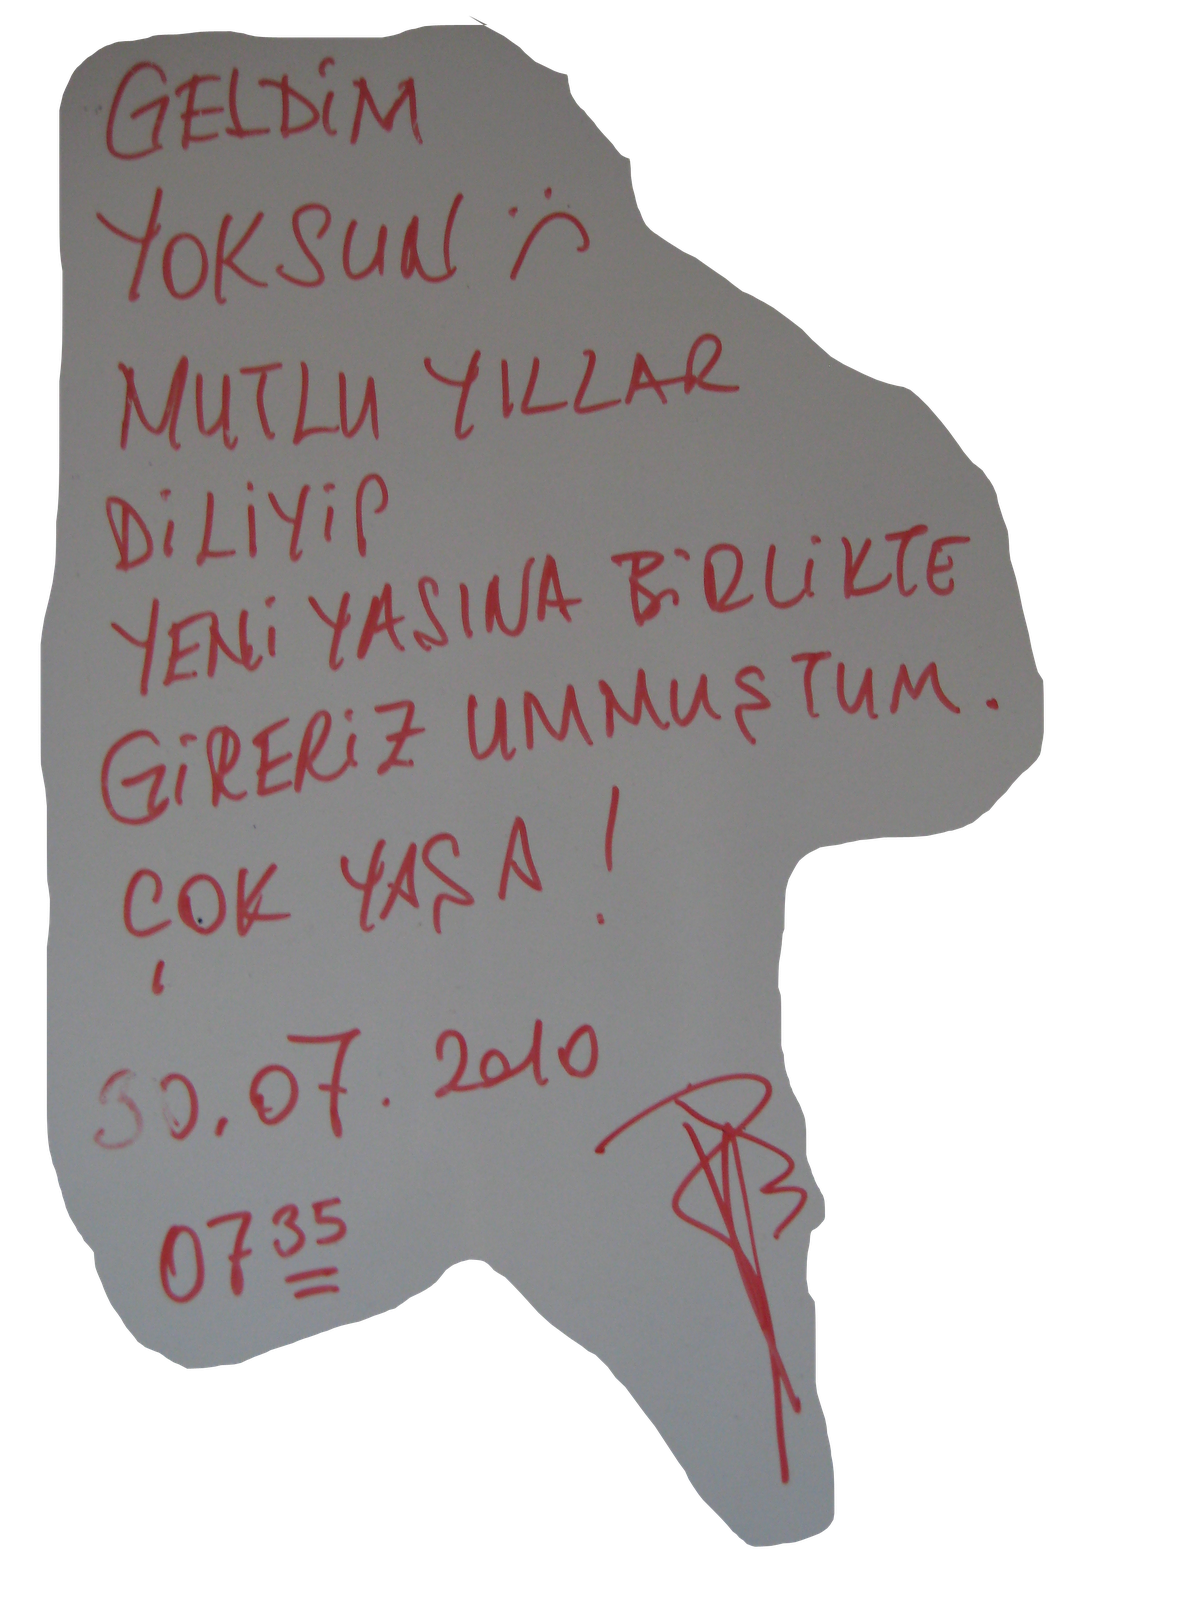 GELDİM
YOKSUN :(
MUTLU YILLAR
DİLİYİP
YENİ YAŞINA BİRLİKTE
GİRERİZ UMMUŞTUM.
ÇOK YAŞA !
30.07.2010
07 35